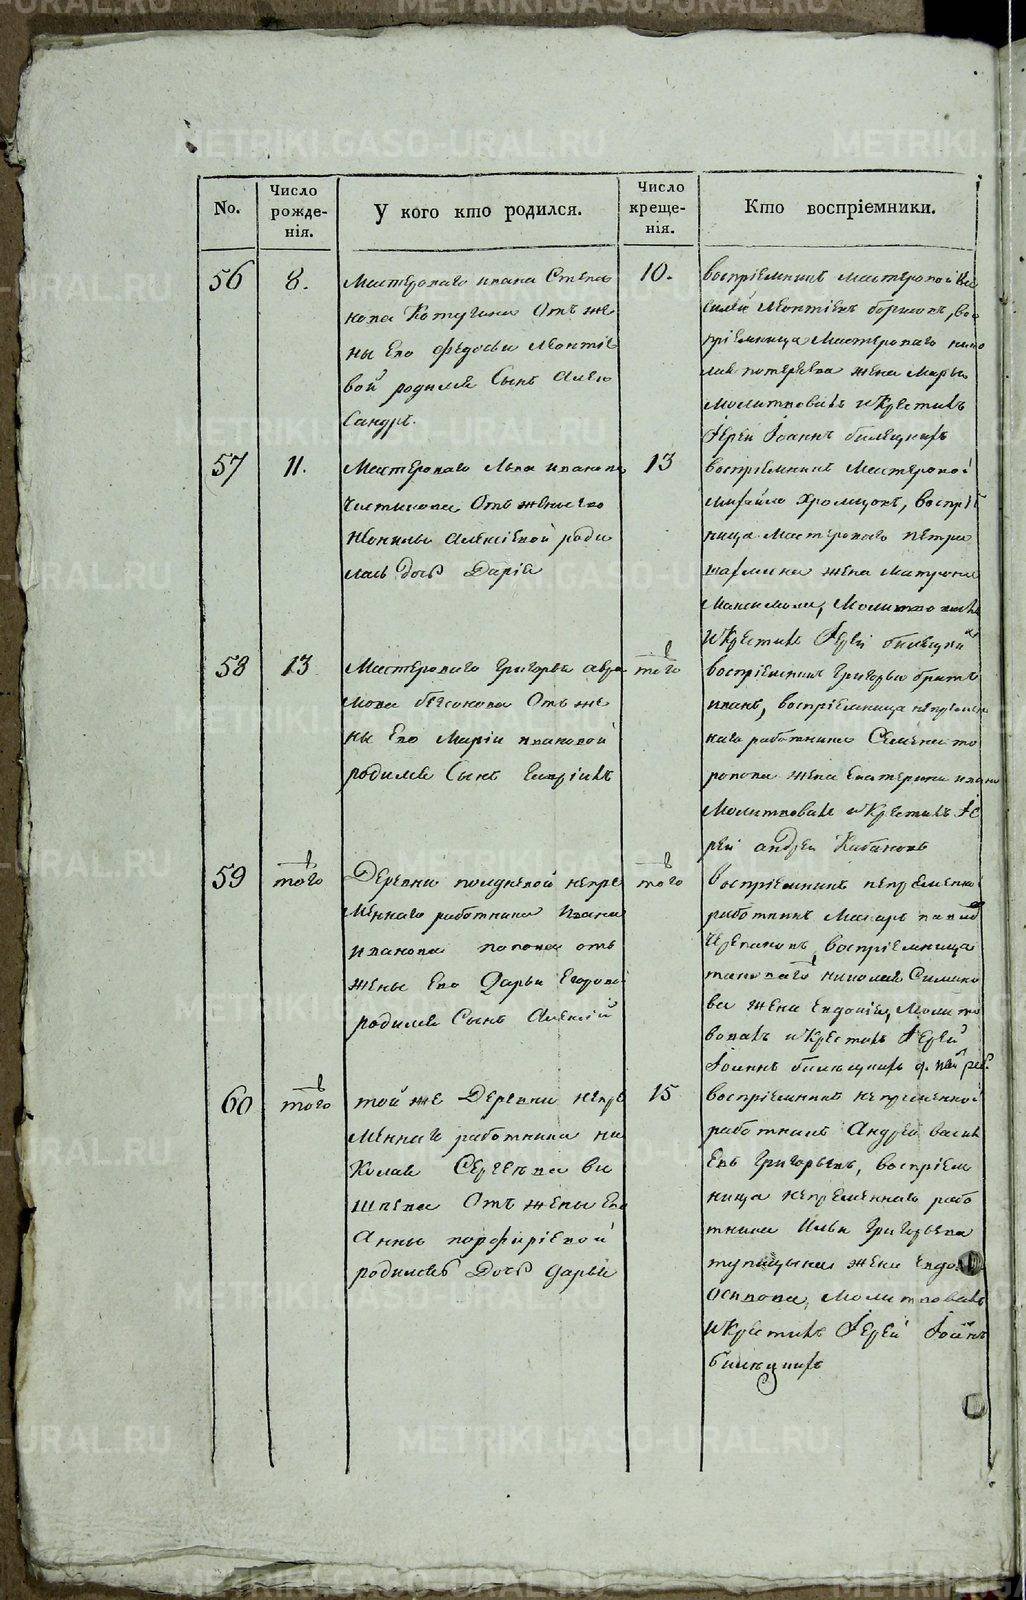 No.
Число рожде-нія.
У кого кто родился.
Число креще-нія.
Кто воспріемники.
56
8.
Мастероваго ивана Степа
нова Котугина Отъ же
ны Его Федосьи леонтіе
вой родился Сынъ Алек
Сандръ.
10.
воспріемникъ мастеровой Ва
силей леонтіевъ борисовъ, вос
пріемница Мастероваго нико
лая жена Марья
молитвовалъ и Крестилъ
Іерей Іоаннъ билецкихъ
57
11.
Мастероваго Льва иванова
Чистикова Отъ жены его
Неонилы Алексіевой роди
лась дочь Дарія
13
воспріемникъ Мастеровой
михайло Хромцовъ, воспріе
ница мастероваго петра
жена матрона
Максимова, Молитвовалъ
и Крестилъ Іерей билецкихъ
58
13
Мастероваго Григорья авра
мова безсонова Отъ же
ны Его Маріи ивановой
родился Сынъ Гавріилъ
того
воспріемникъ Григорья братъ
иванъ, воспріемница непремен
наго работника Семена то
ропова жена Екатерина ивано
Молитвовалъ и Крестилъ Іе
рей андрей Кабановъ
59
того
Деревни полдневой непре
меннаго работника Ивана
иванова попова отъ
жены Его Дарьи Егоровой
родился Сынъ Алексій
того
воспріемникъ непременной
работникъ Макаръ павлов
Черепановъ, воспріемница
таковаго николая Симано
ва жена Евдокія, Молитво
вовалъ и Крестилъ Іерей
Іоаннъ билецкихъ
60
того
той же Деревни непре
меннаго работника ни
Колая Сергеева ви
шнева Отъ жены Его
Анны порфиріевой
родилась Дочь дарья
15
воспріемникъ непременной
работникъ Андрей васил
евъ Григорьевъ, воспріем
ница непременнаго рабо
тника Ильи Григорьева
тупицына жена
осипова, молитвовалъ
и Крестилъ Іерей Іоаннъ
билецкихъ
METRIKI.GASO-URAL.RU